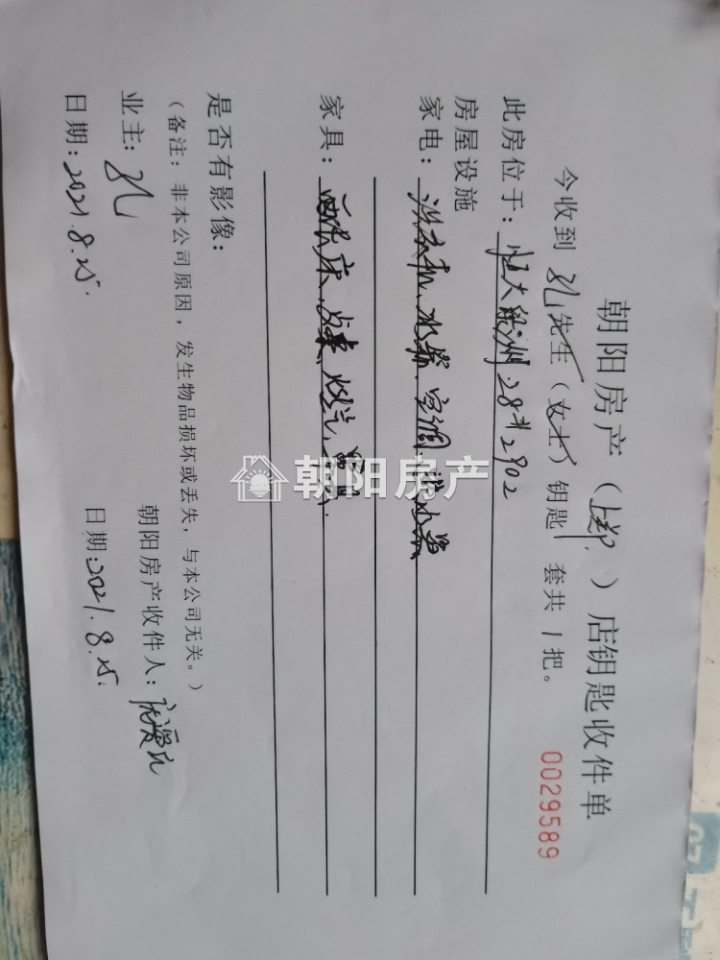 朝阳房产（上郡）店钥匙收件单
0029589
今收到孔先生（女士）钥匙1套共1把。
此房位于：恒大绿洲28#2902
房屋设施
家电：洗衣机、冰箱、空调、热水器
家具：床、桌、燃气
是否有影像：
（备注：非本公司原因，发生物品损坏或丢失，与本公司无关。）
业主：孔
朝阳房产收件人：
日期：2021.8.25.
日期：2021.8.25.
朝阳房产